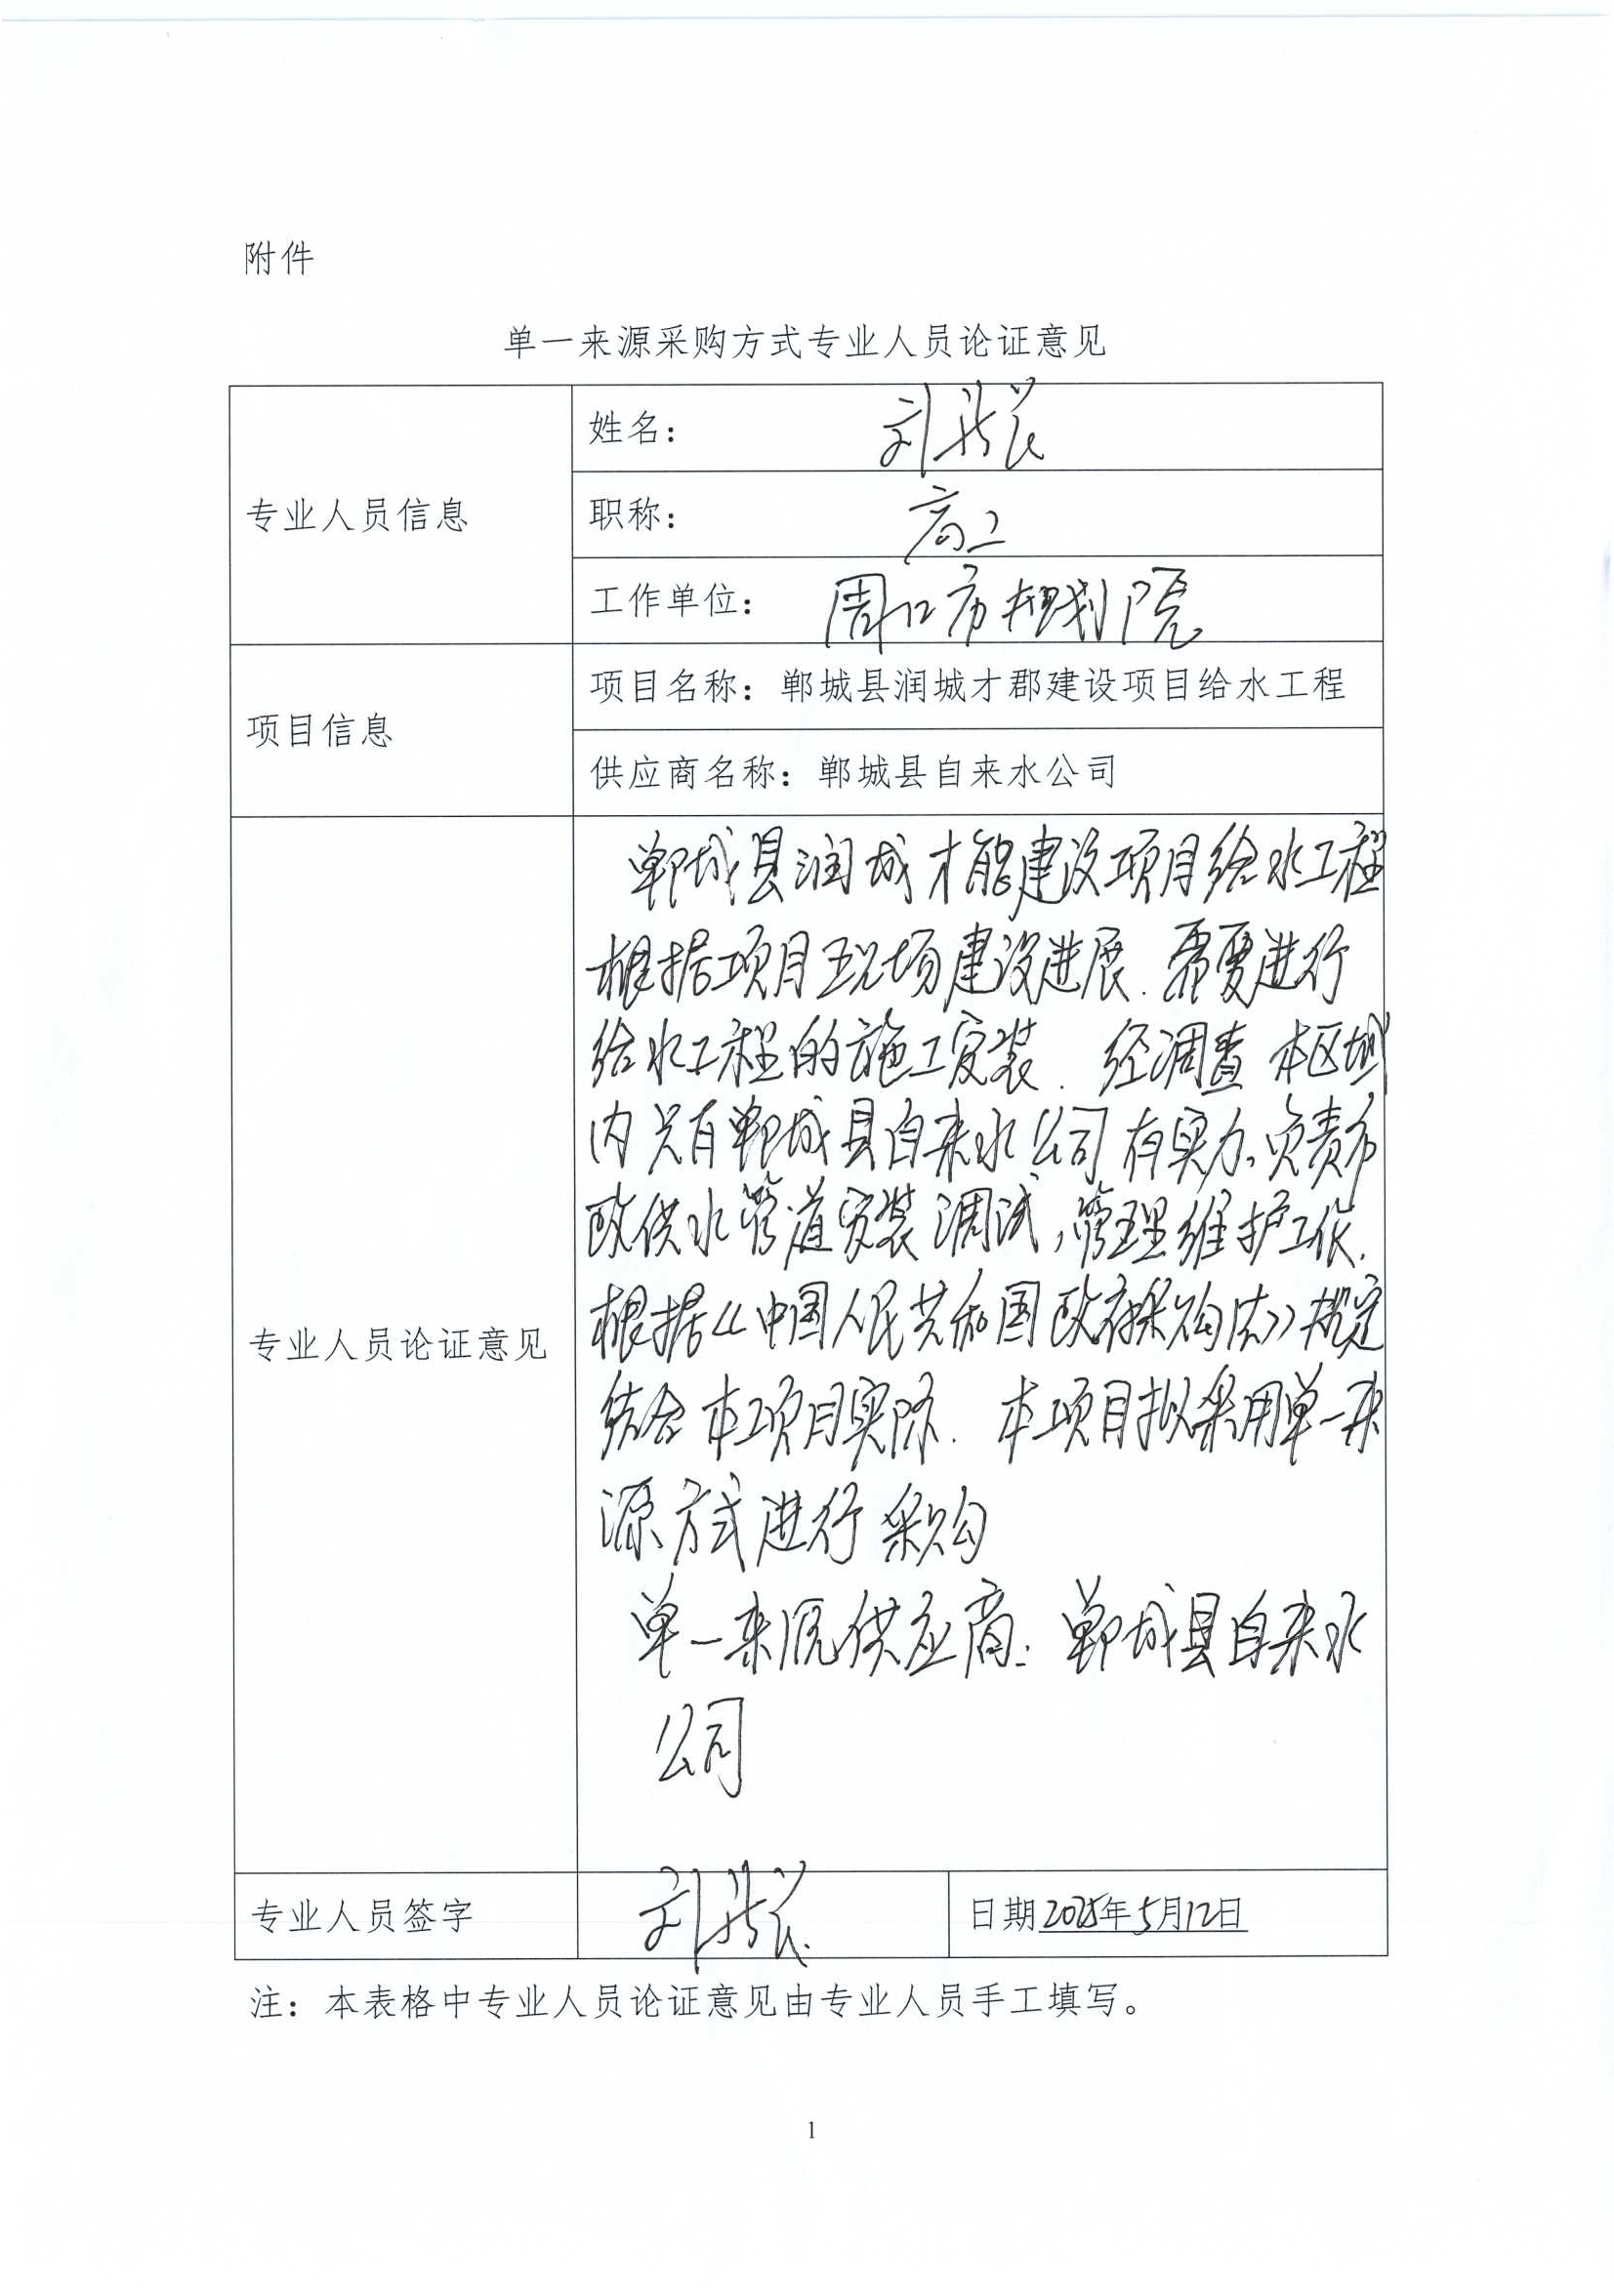 附件
单一来源采购方式专业人员论证意见
专业人员信息
姓名： 刘
职称： 高工
工作单位： 周口市规划院
项目信息
项目名称：郸城县润城才郡建设项目给水工程
供应商名称：郸城县自来水公司
专业人员论证意见
郸城县润城才能建设项目给水工程
根据项目现场建设进展.需要进行
给水工程的施工安装.经调查本区域
内只有郸城县自来水公司有实力、负责市
政供水管道安装调试,管理维护工作.
根据《中国人民共和国政府采购法》规定
结合本项目实际.本项目拟采用单一来
源方式进行采购
单一来源供应商:郸城县自来水
公司
专业人员签字
刘
日期2025年5月12日
注：本表格中专业人员论证意见由专业人员手工填写。
1